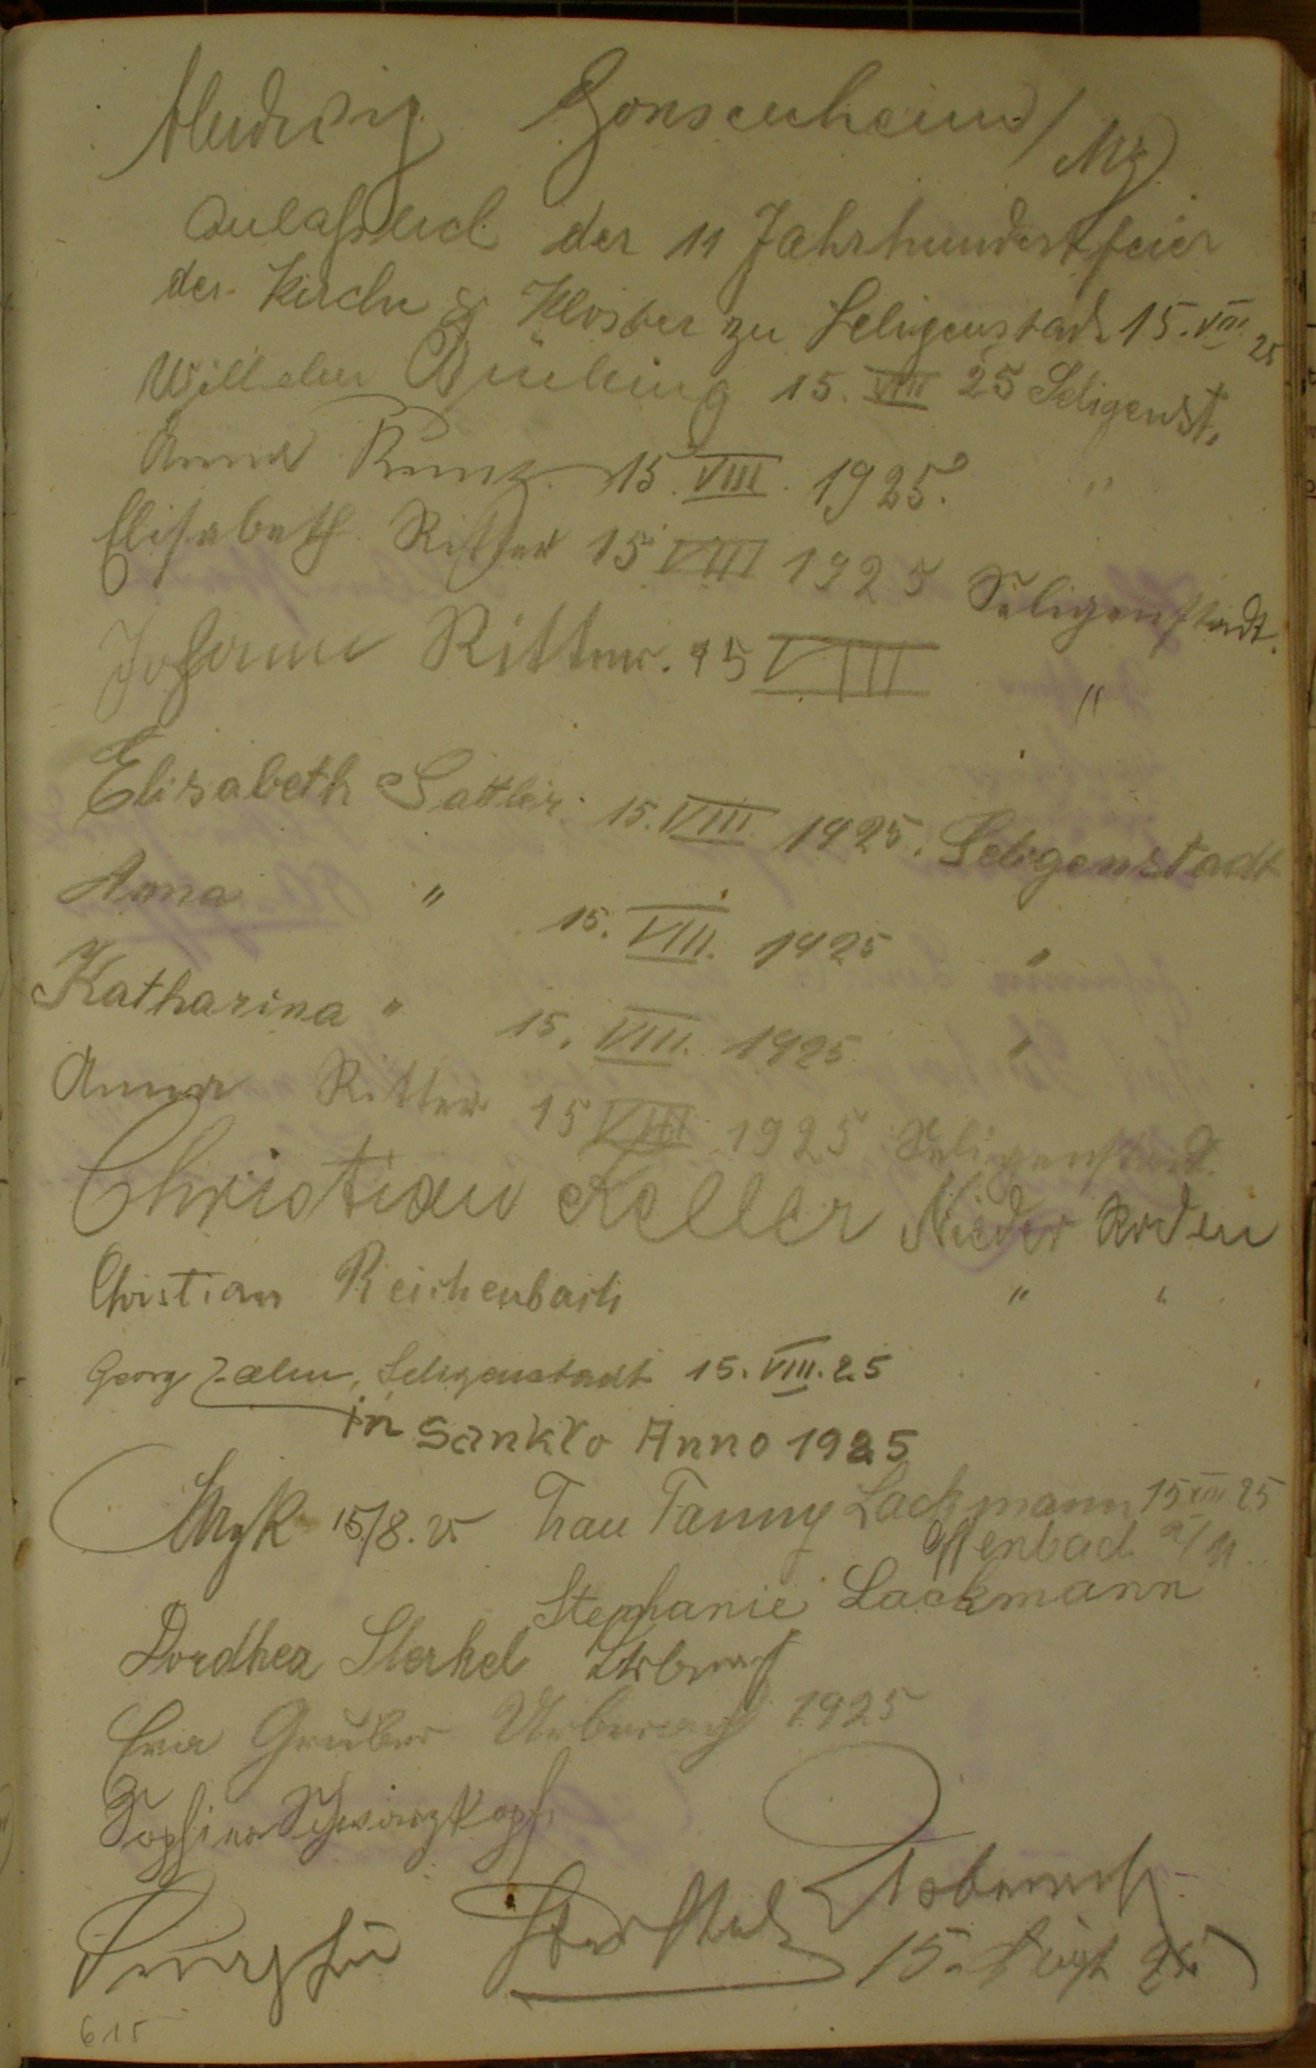 Gonsenheim / Mz
anlässlich der 11 Jahrhundertfeier
der Kirche & Kloster zu Seligenstadt 15. VIII. 25
Wilhelm Büching 15. VIII 25 Seligenst.
Anna 15. VIII. 1925. "
Elisabeth Ritter 15 VIII 1925 Seligenstadt.
Johann Ritter. 15 VIII "
Elisabeth Sattler. 15. VIII. 1925. Seligenstadt
Anna " 15. VIII. 1925 "
Katharina " 15. VIII. 1925 "
Anna Ritter 15 VIII 1925 Seligenstadt.
Christian Keller Nieder Roden
Christian Reichenbach " "
Georg Zahn, Seligenstadt 15. VIII. 25
in Sankto Anno 1925
15/8. 25 Frau Fanny Lackmann 15 VIII 25
Offenbach a/M.
Stephanie Lackmann
Dordhea Sterkel Urberach
Eva Gruber Urberach 1925
Schwarzkopf
15. 25
615